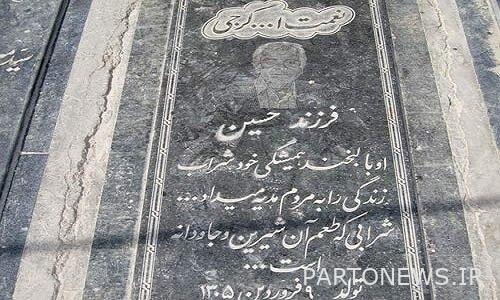 نعمت ا... گرجی
فرزند حسین
او با لبخند همیشگی خود شراب
زندگی را به مردم هدیه میداد...
شرابی که طعم آن شیرین و جاودانه
است...
تولد ۹ فروردین ۱۳۰۵
PARTONEWS.IR